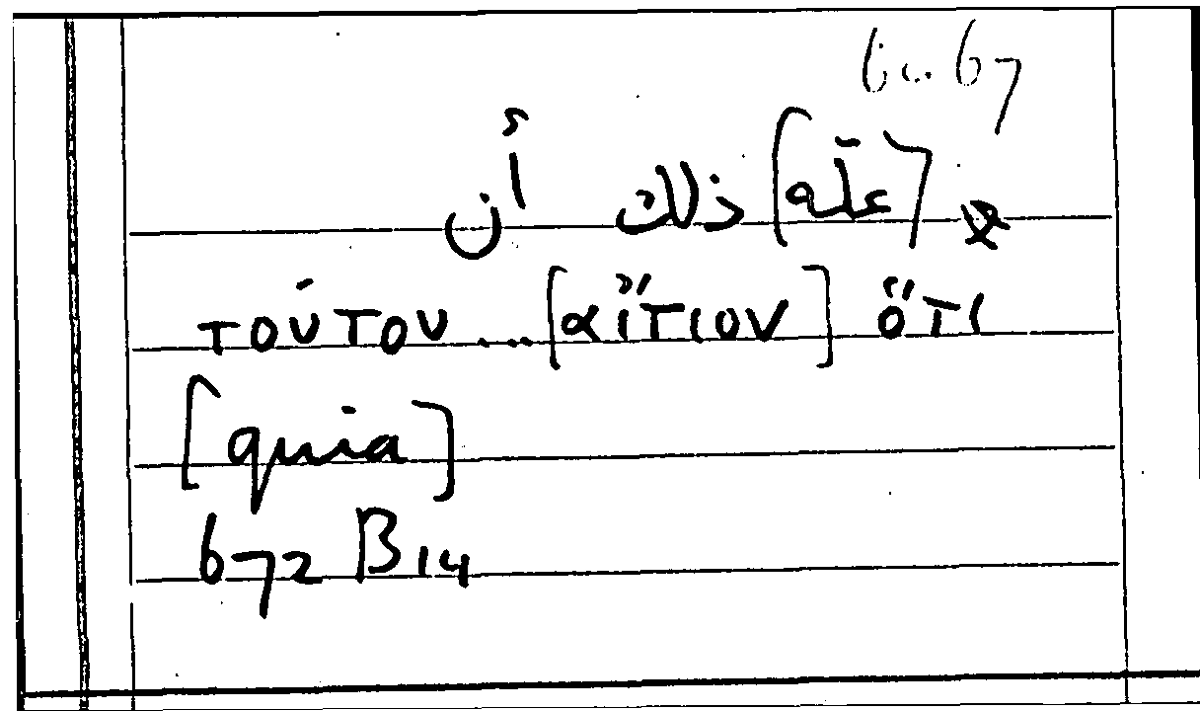 [علّة] ذلك أن
τούτου ... [αἴτιον] ὅτι
[quia]
672 B14